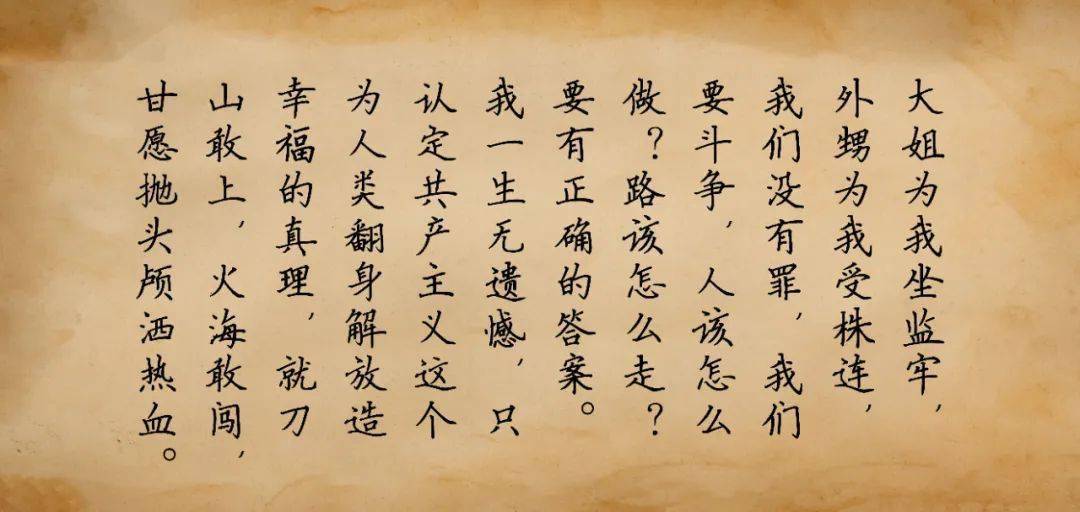 大姐为我坐监牢，
外甥为我受株连，
我们没有罪，我们
要斗争，人该怎么
做？路该怎么走？
要有正确的答案。
我一生无遗憾，只
认定共产主义这个
为人类翻身解放造
幸福的真理，就刀
山敢上，火海敢闯，
甘愿抛头颅洒热血。